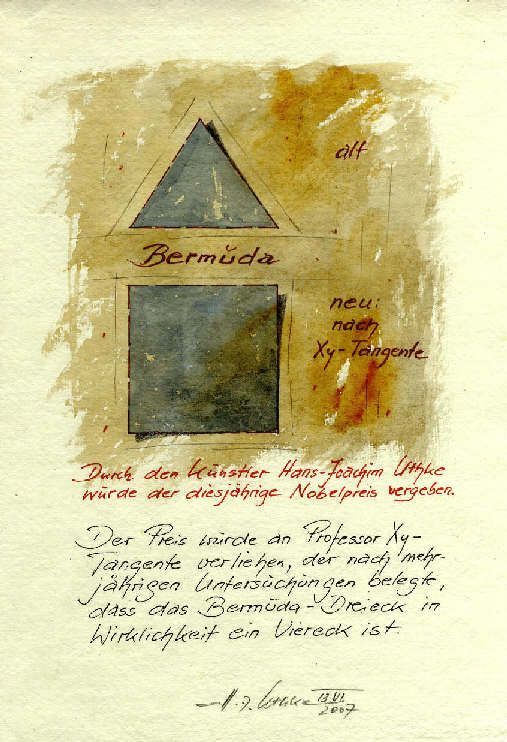 alt
Bermŭda
neu:
nach
Xy-Tangente
Durch den Künstler Hans-Joachim Uthke
wurde der diesjährige Nobelpreis vergeben.
Der Preis wurde an Professor Xy-
Tangente verliehen, der nach mehr-
jährigen Untersuchungen belegte,
dass das Bermuda-Dreieck in
Wirklichkeit ein Viereck ist.
H. J. Uthke 13.VI.
2007